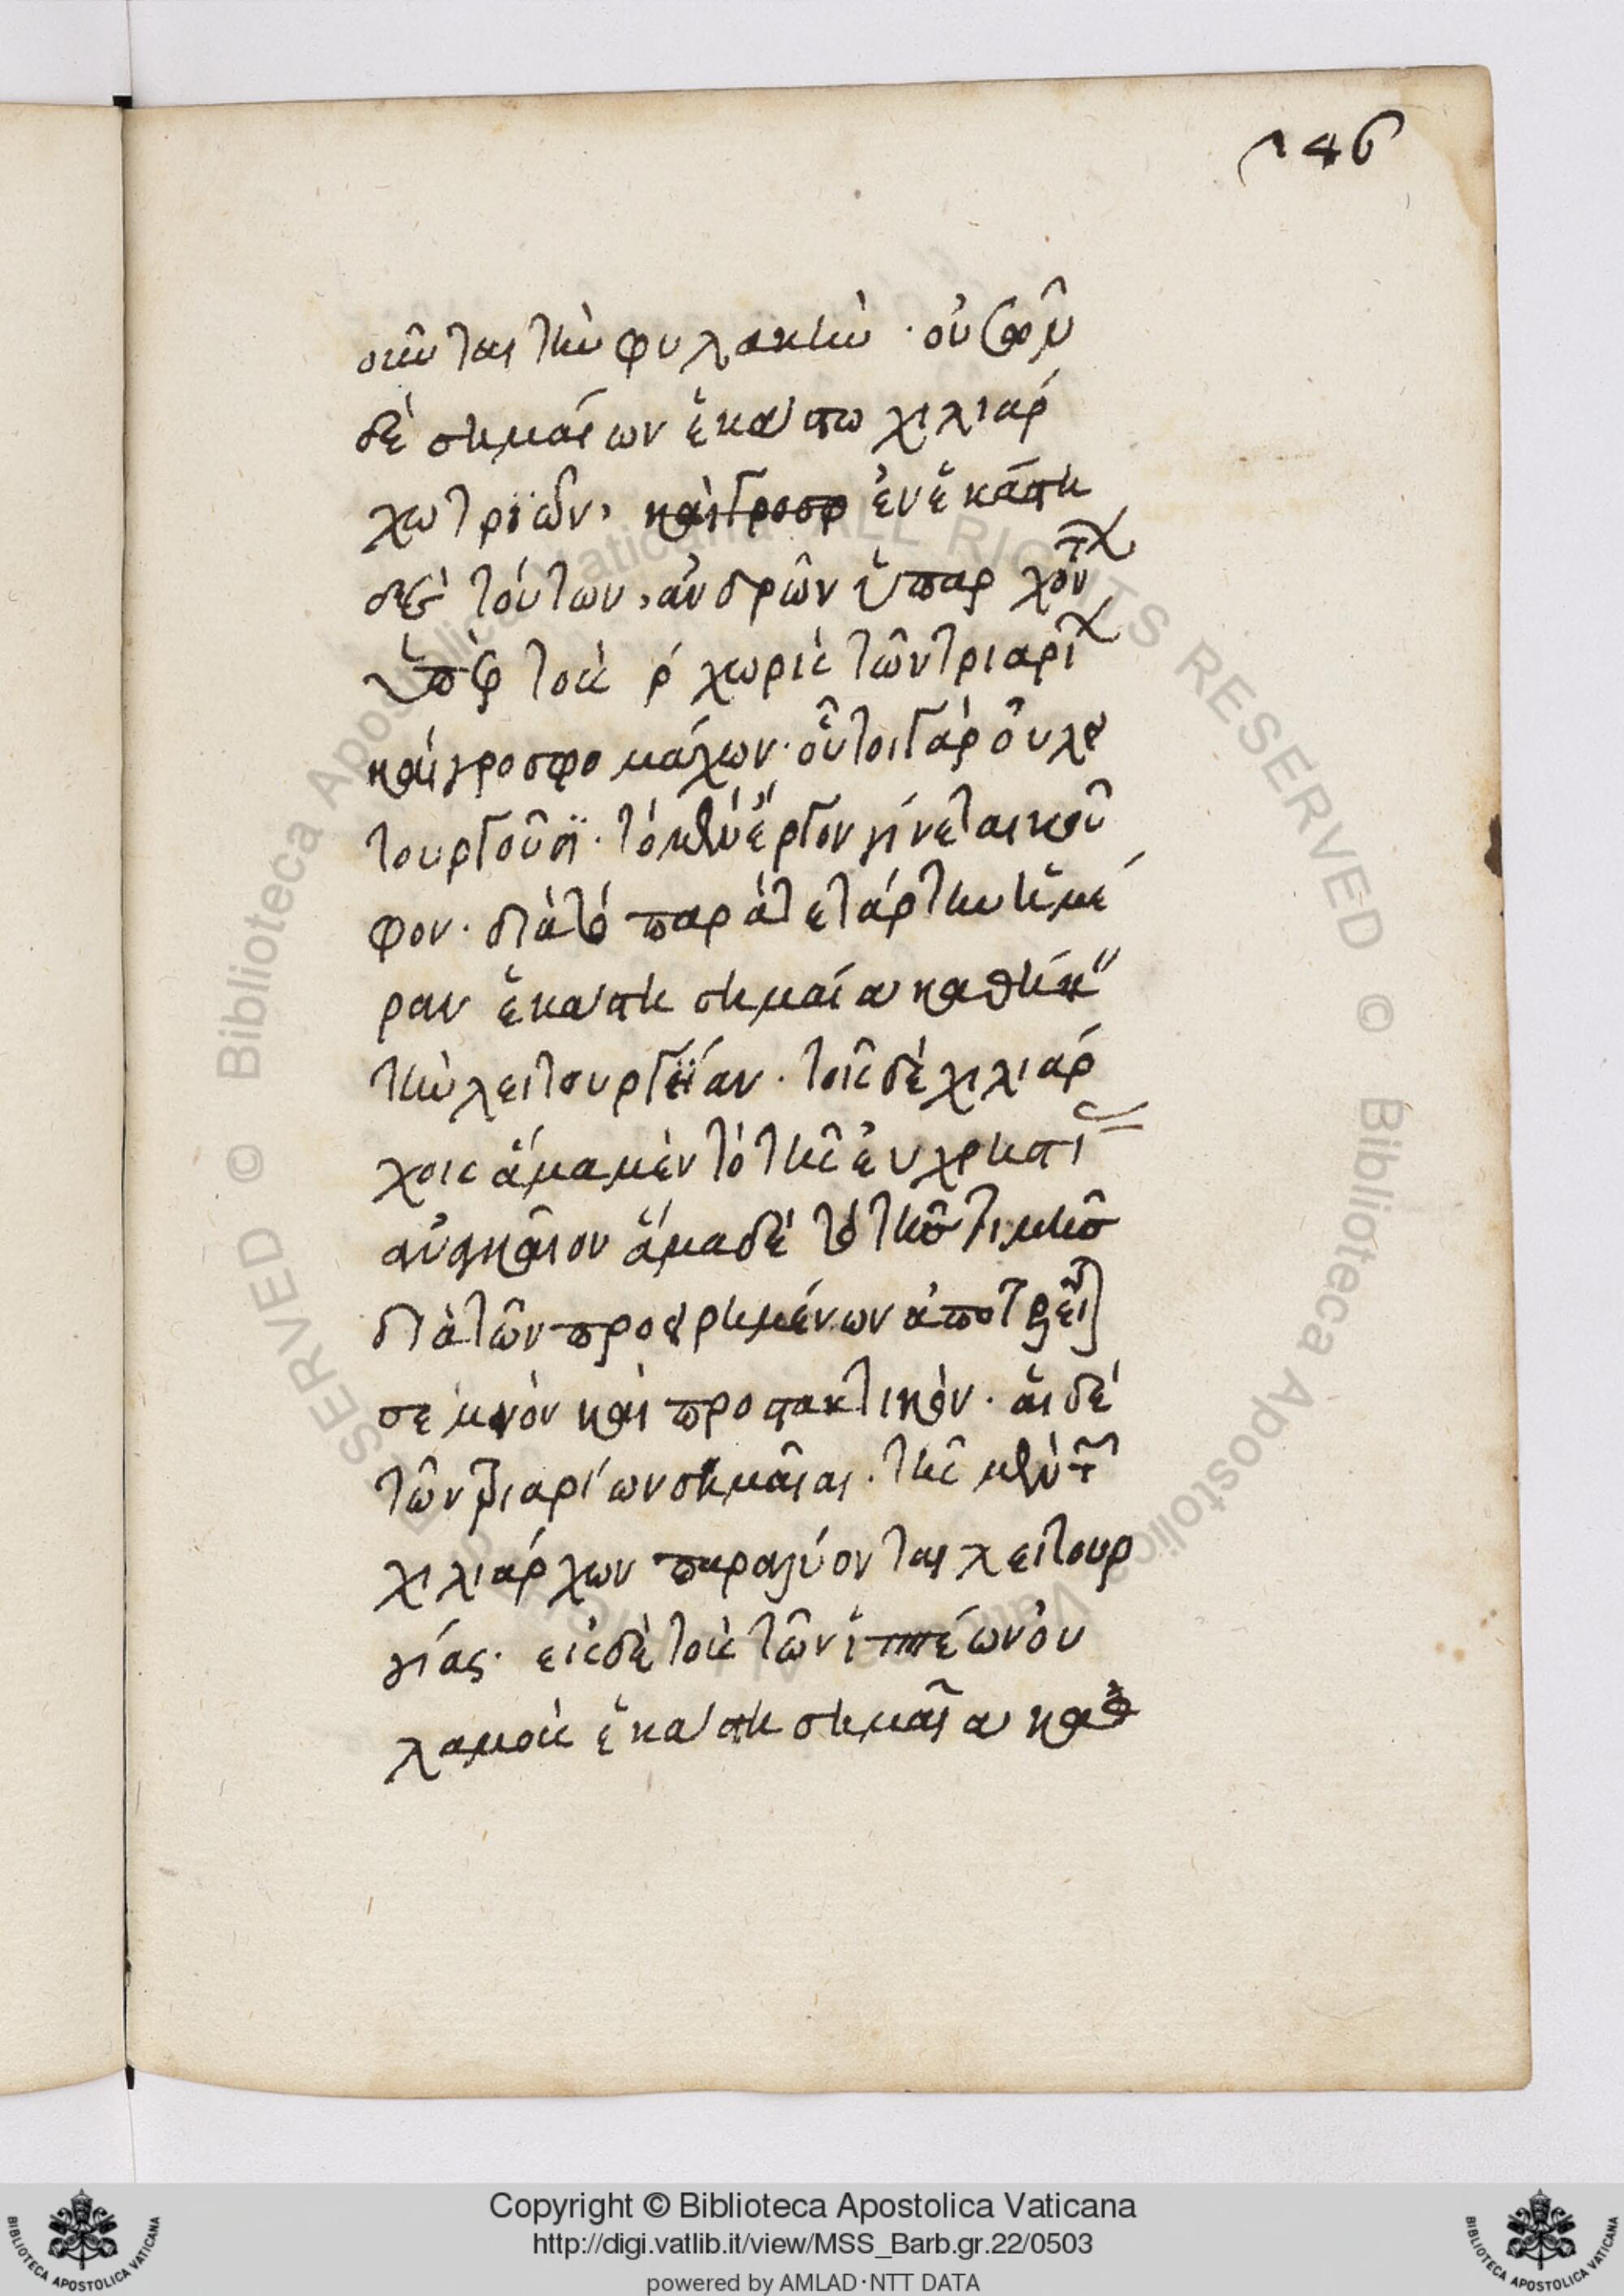 146
σκῆνται τὴν φυλακὴν · οὐσῶν
δὲ σημαίων ἑκάστω χιλιάρ
χω τριῶν, ἐν ἑκάστη
δὲ τούτων, ἀνδρῶν ὑπαρχόντων
ὑπὲρ τοὺς ρ χωρὶς τῶν τριαρίων
καὶ γροσφομάχων· οὗτοι γὰρ οὐ λει
τουργοῦσι· τὸ μὲν ἔργον γίνεται κοῦ
φον· διὰ τὸ παρὰ τετάρτην ἡμέ
ραν ἑκάστη σημαία καθήκειν
τὴν λειτουργίαν· τοῖς δὲ χιλιάρ
χοις ἅμα μὲν τὸ τῆς εὐχρηστίας
ἀναγκαῖον ἅμα δὲ τὸ τῆς τιμῆς
διὰ τῶν προειρημένων ἀποτελεῖται
σεμνὸν καὶ προστακτικόν· αἱ δὲ
τῶν τριαρίων σημαῖαι· τῆς μὲν τῶν
χιλιάρχων παραλύονται λειτουρ
γίας· εἰς δὲ τοὺς τῶν ἱππέων οὐ
λαμοὺς ἑκάστη σημαία καθ
Copyright © Biblioteca Apostolica Vaticana
http://digi.vatlib.it/view/MSS_Barb.gr.22/0503
powered by AMLAD·NTT DATA
BIBLIOTECA APOSTOLICA VATICANA
BIBLIOTECA APOSTOLICA VATICANA
© Biblioteca Apostolica Vaticana ALL RIGHTS RESERVED
© Biblioteca Apostolica Vaticana ALL RIGHTS RESERVED